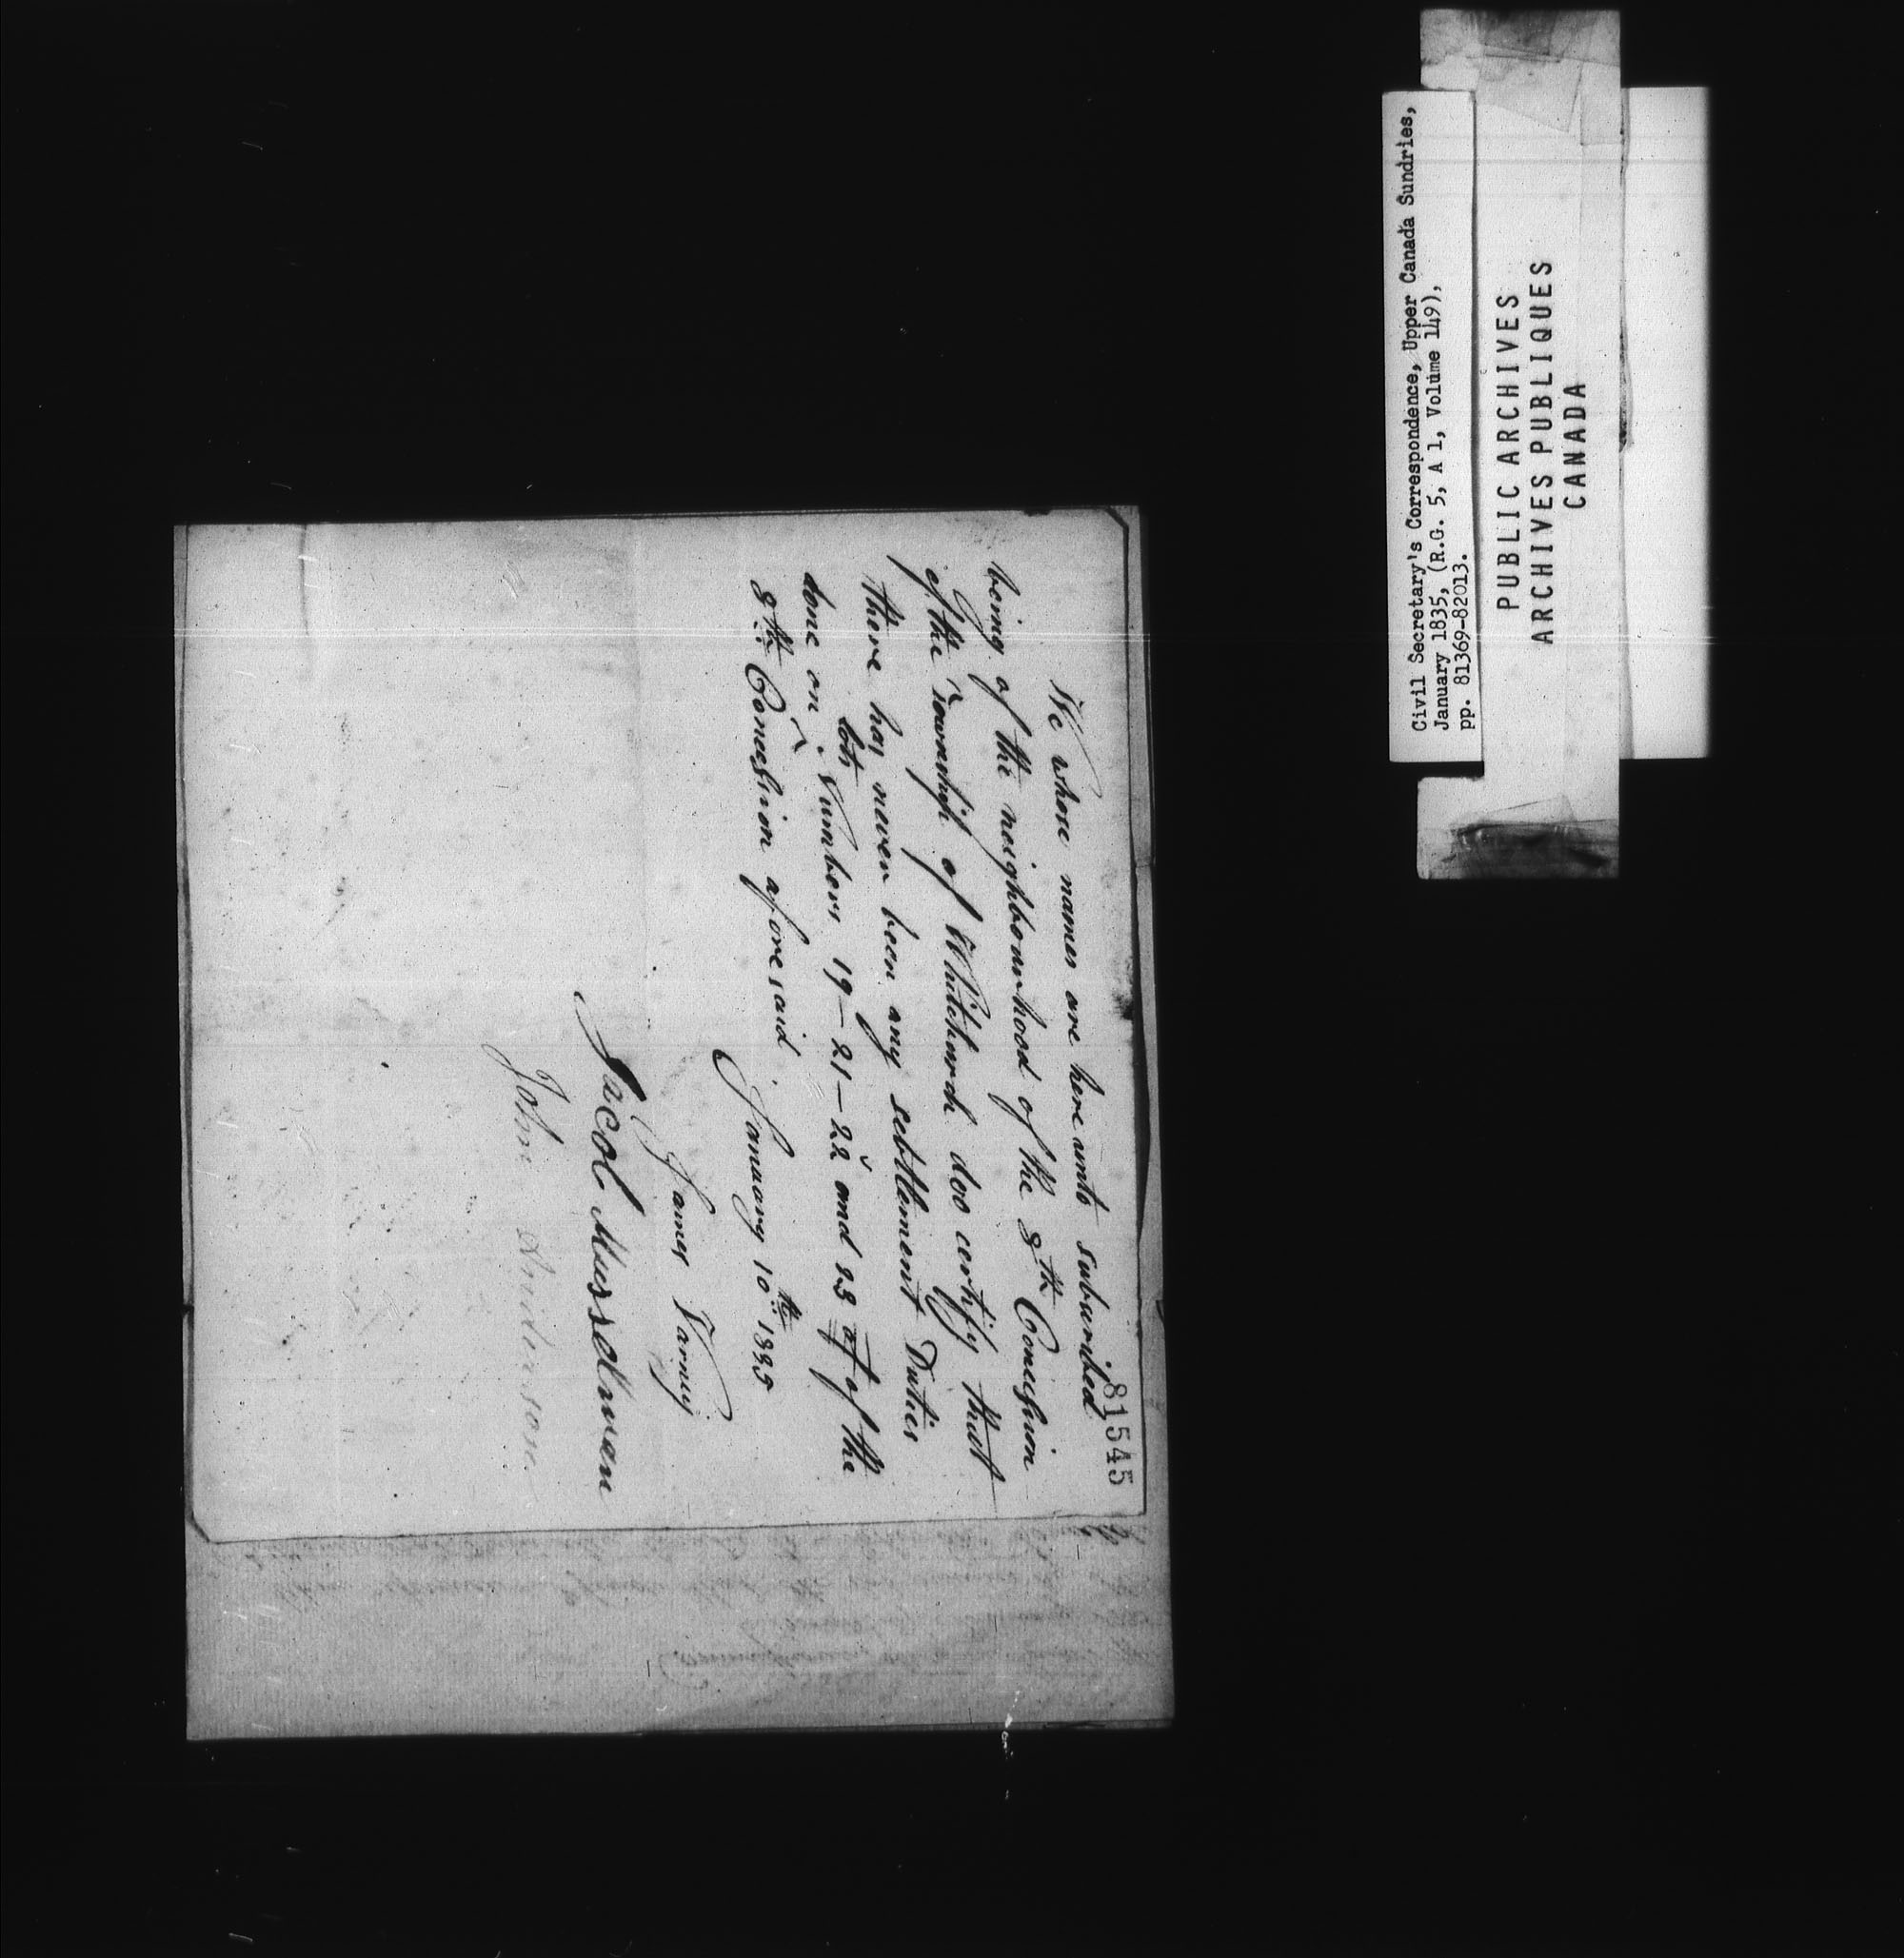 81545
We whose names are hereunto subscribed
being of the neighbourhood of the 8th Concession
of the Township of Whitchurch doo certify that
there has never been any settlement Duties
done on lots Numbers 19 – 21 – 22 and 23 of of the
8th Concession aforesaid.
January 10th 1835
James Varney
Jacob Musselman
John Anderson
Civil Secretary's Correspondence, Upper Canada Sundries,
January 1835, (R.G. 5, A 1, Volume 149),
pp. 81369-82013.
PUBLIC ARCHIVES
ARCHIVES PUBLIQUES
CANADA